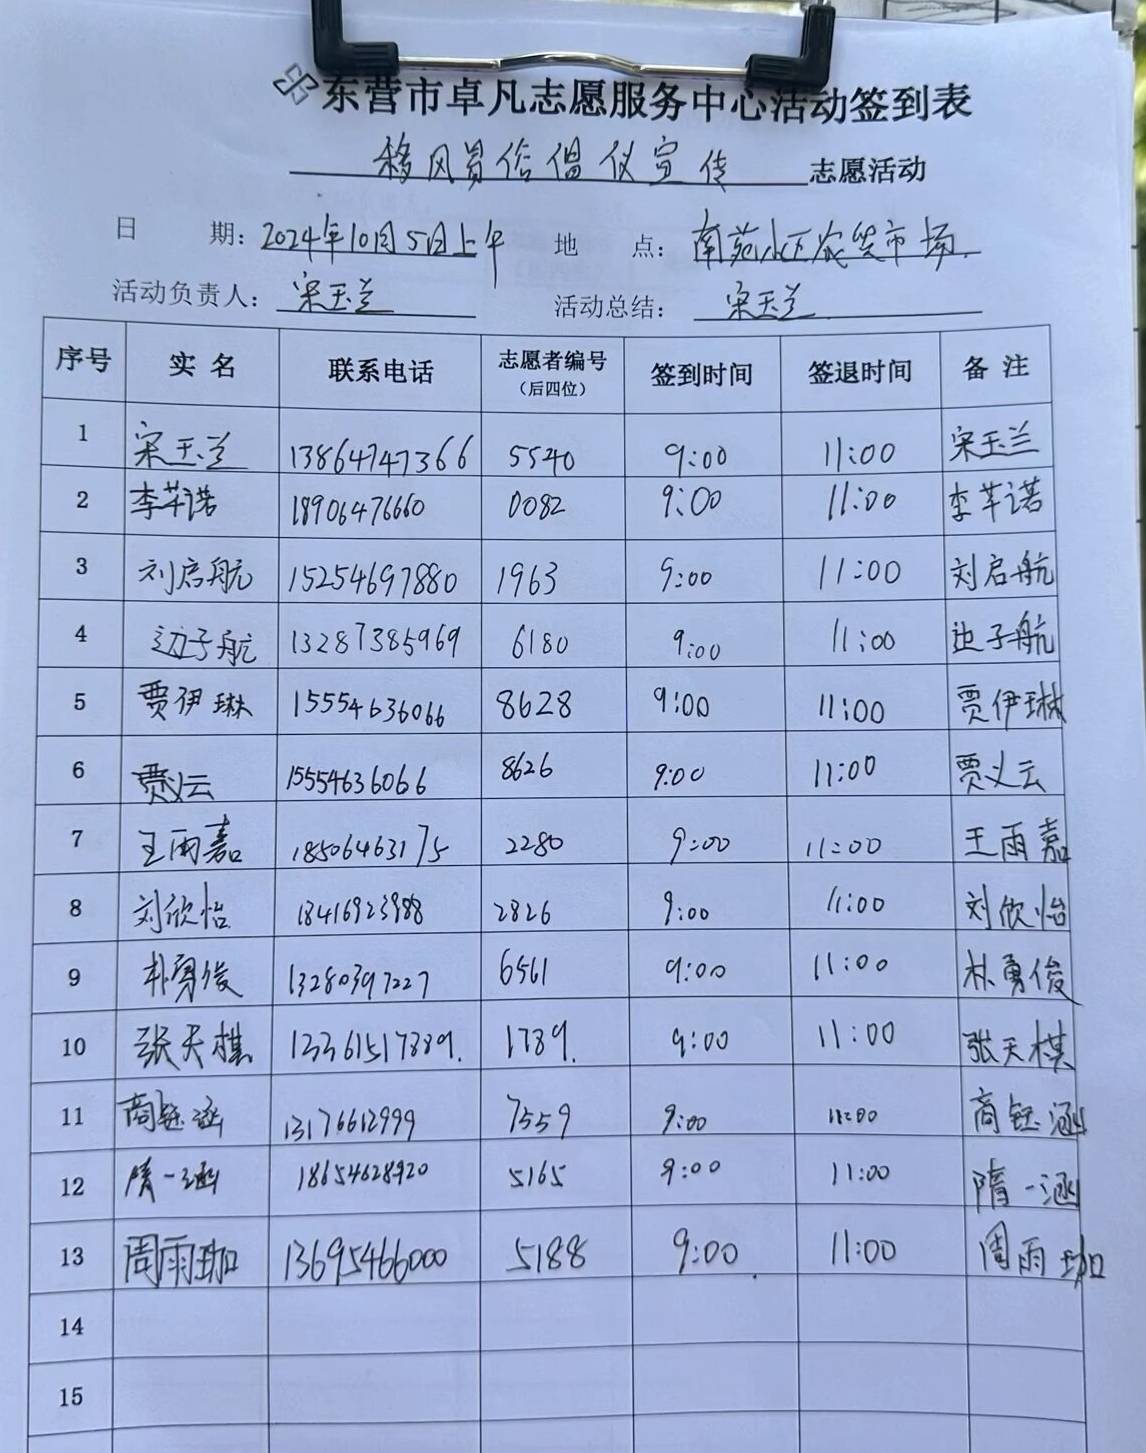 东营市卓凡志愿服务中心活动签到表
移风易俗倡仪宣传 志愿活动
日 期: 2024年10月5日上午 地 点: 南苑小区农贸市场.
活动负责人: 宋玉兰 活动总结: 宋玉兰
序号 实 名 联系电话 志愿者编号(后四位) 签到时间 签退时间 备 注
1 宋玉兰 13864747366 5540 9:00 11:00 宋玉兰
2 李芊诺 18906476660 0082 9:00 11:00 李芊诺
3 刘启航 15254697880 1963 9:00 11:00 刘启航
4 边子航 13287385969 6180 9:00 11:00 边子航
5 贾伊琳 15554636066 8628 9:00 11:00 贾伊琳
6 贾义云 15554636066 8626 9:00 11:00 贾义云
7 王雨嘉 18506463175 2280 9:00 11:00 王雨嘉
8 刘欣怡 2826 9:00 11:00 刘欣怡
9 林勇俊 13280397227 6561 9:00 11:00 林勇俊
10 张天棋 9:00 11:00 张天棋
11 商钰涵 13176612999 7559 9:00 11:00 商钰涵
12 隋一涵 18654628920 5165 9:00 11:00 隋一涵
13 周雨珈 13695466000 5188 9:00 11:00 周雨珈
14
15